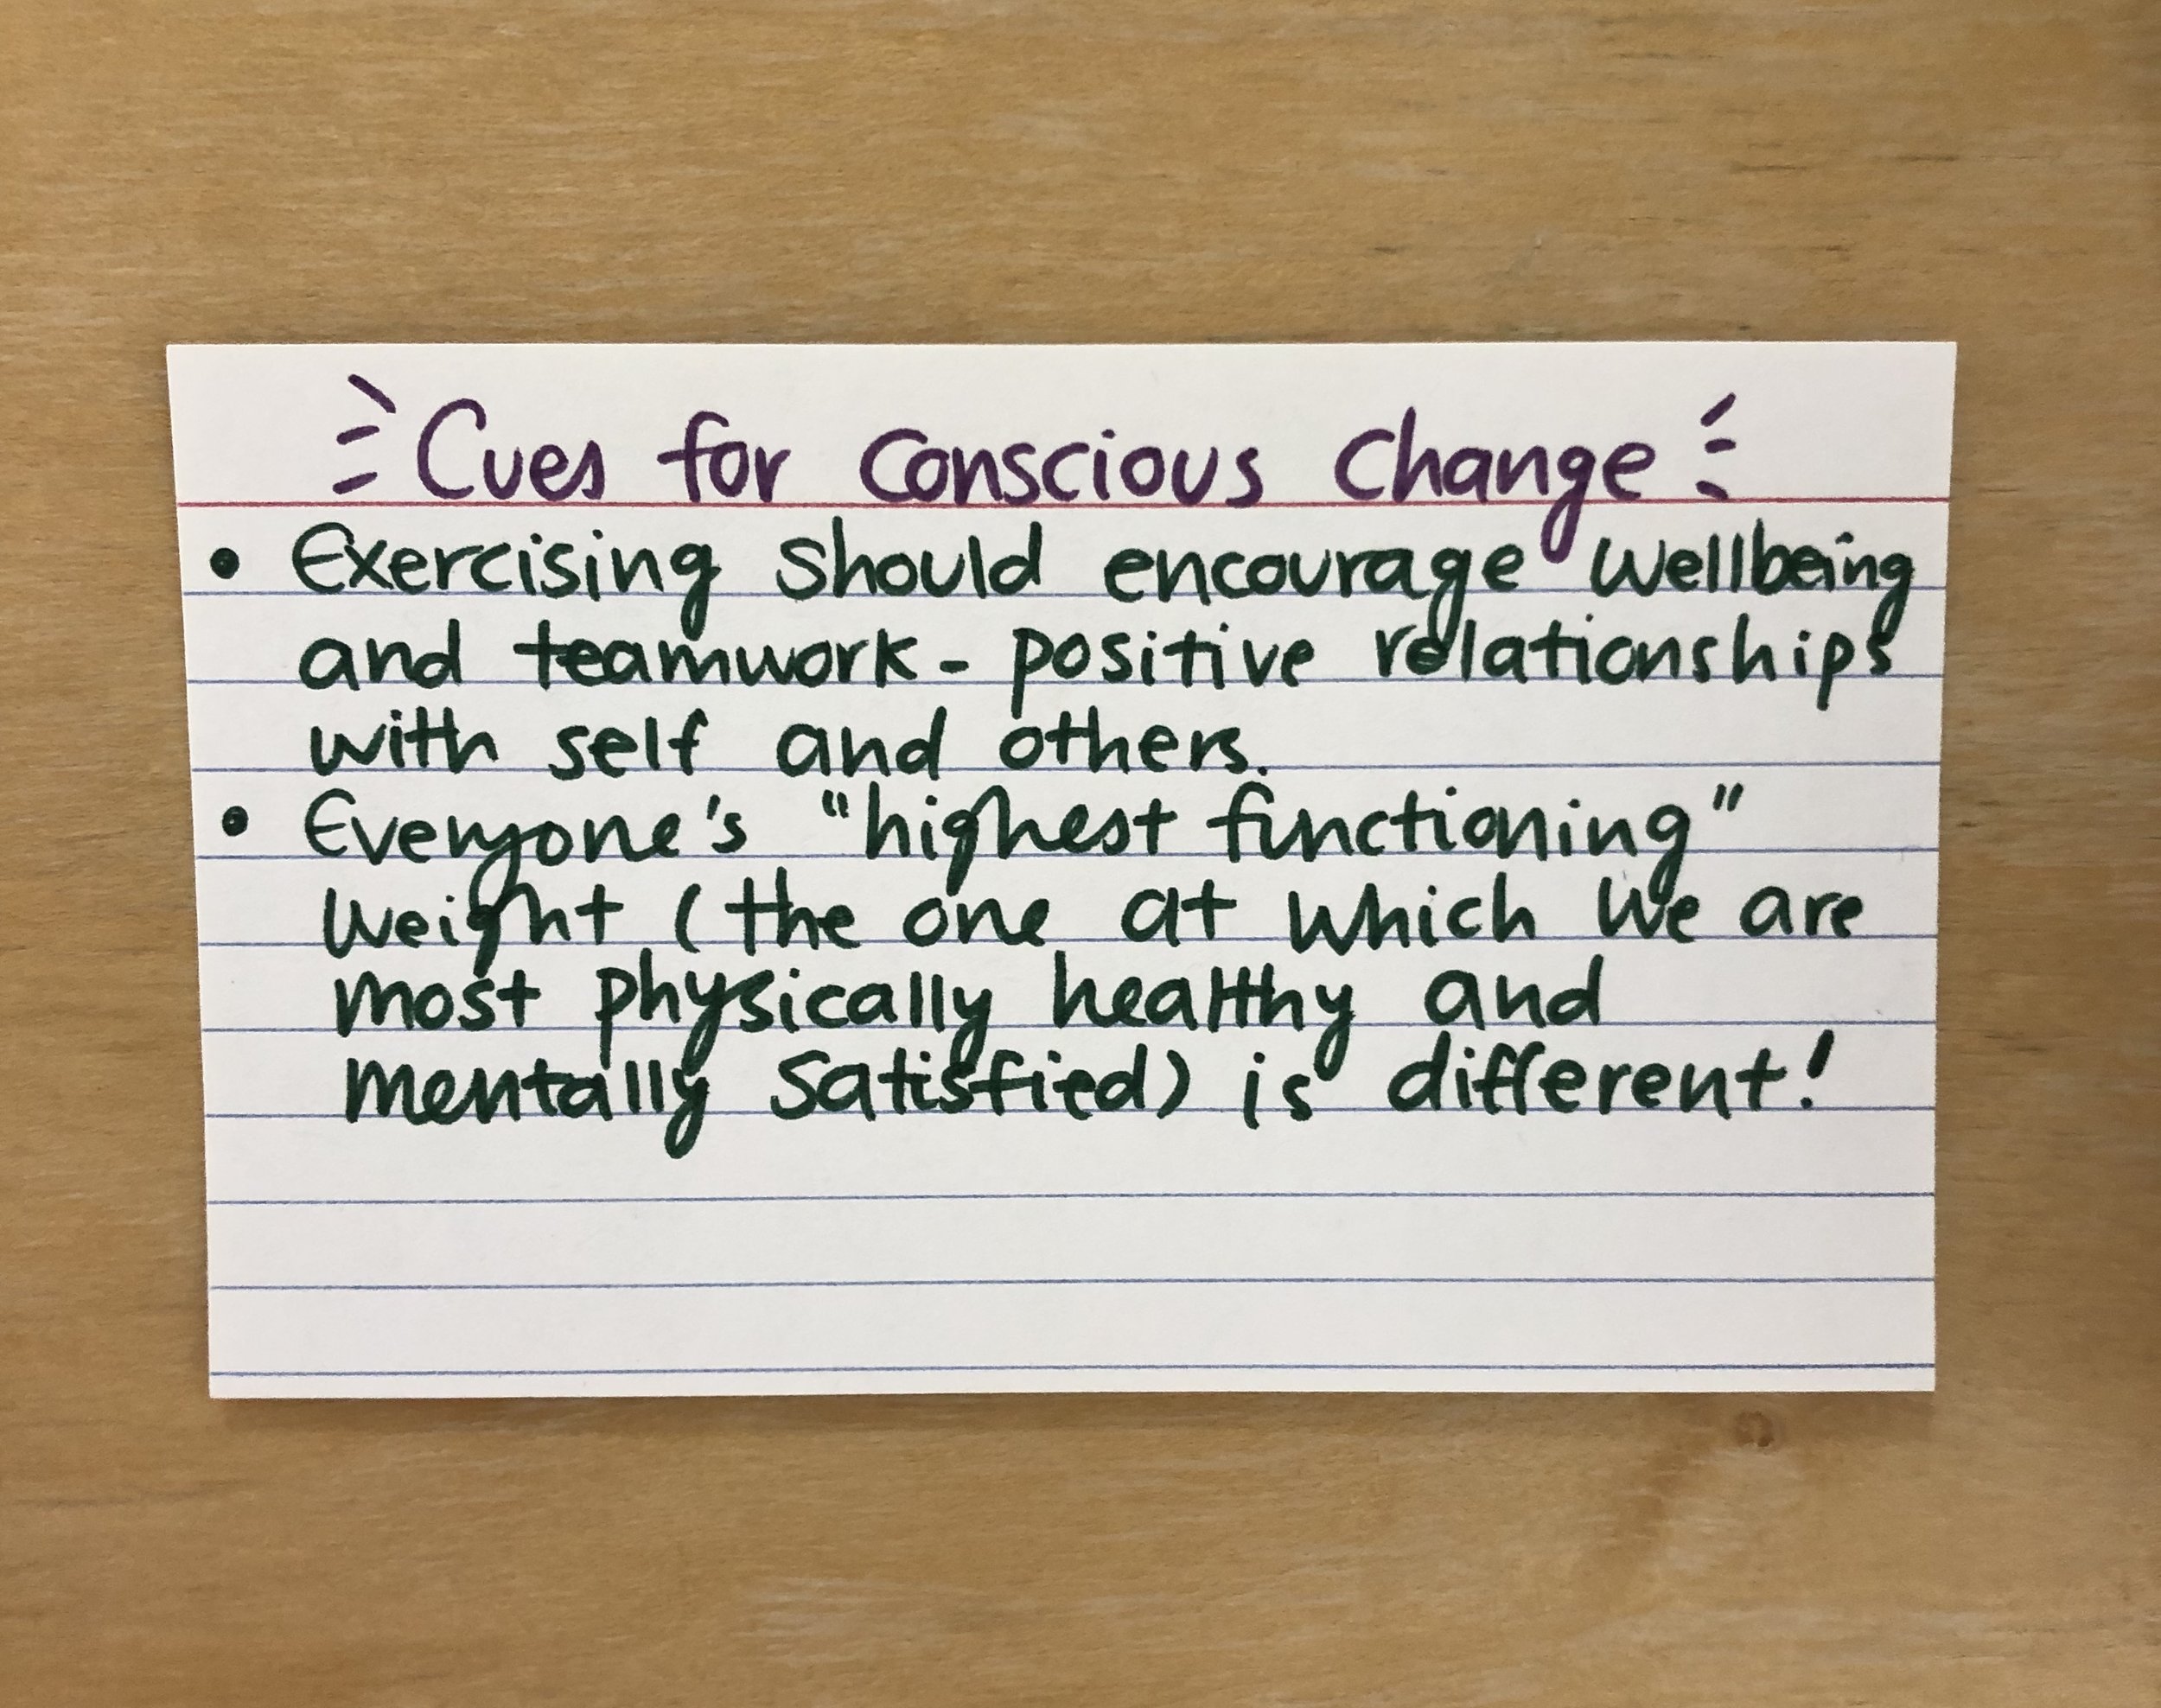 Cues for Conscious Change
• Exercising should encourage wellbeing
and teamwork - positive relationships
with self and others.
• Everyone's "highest functioning"
weight (the one at which we are
most physically healthy and
mentally satisfied) is different!